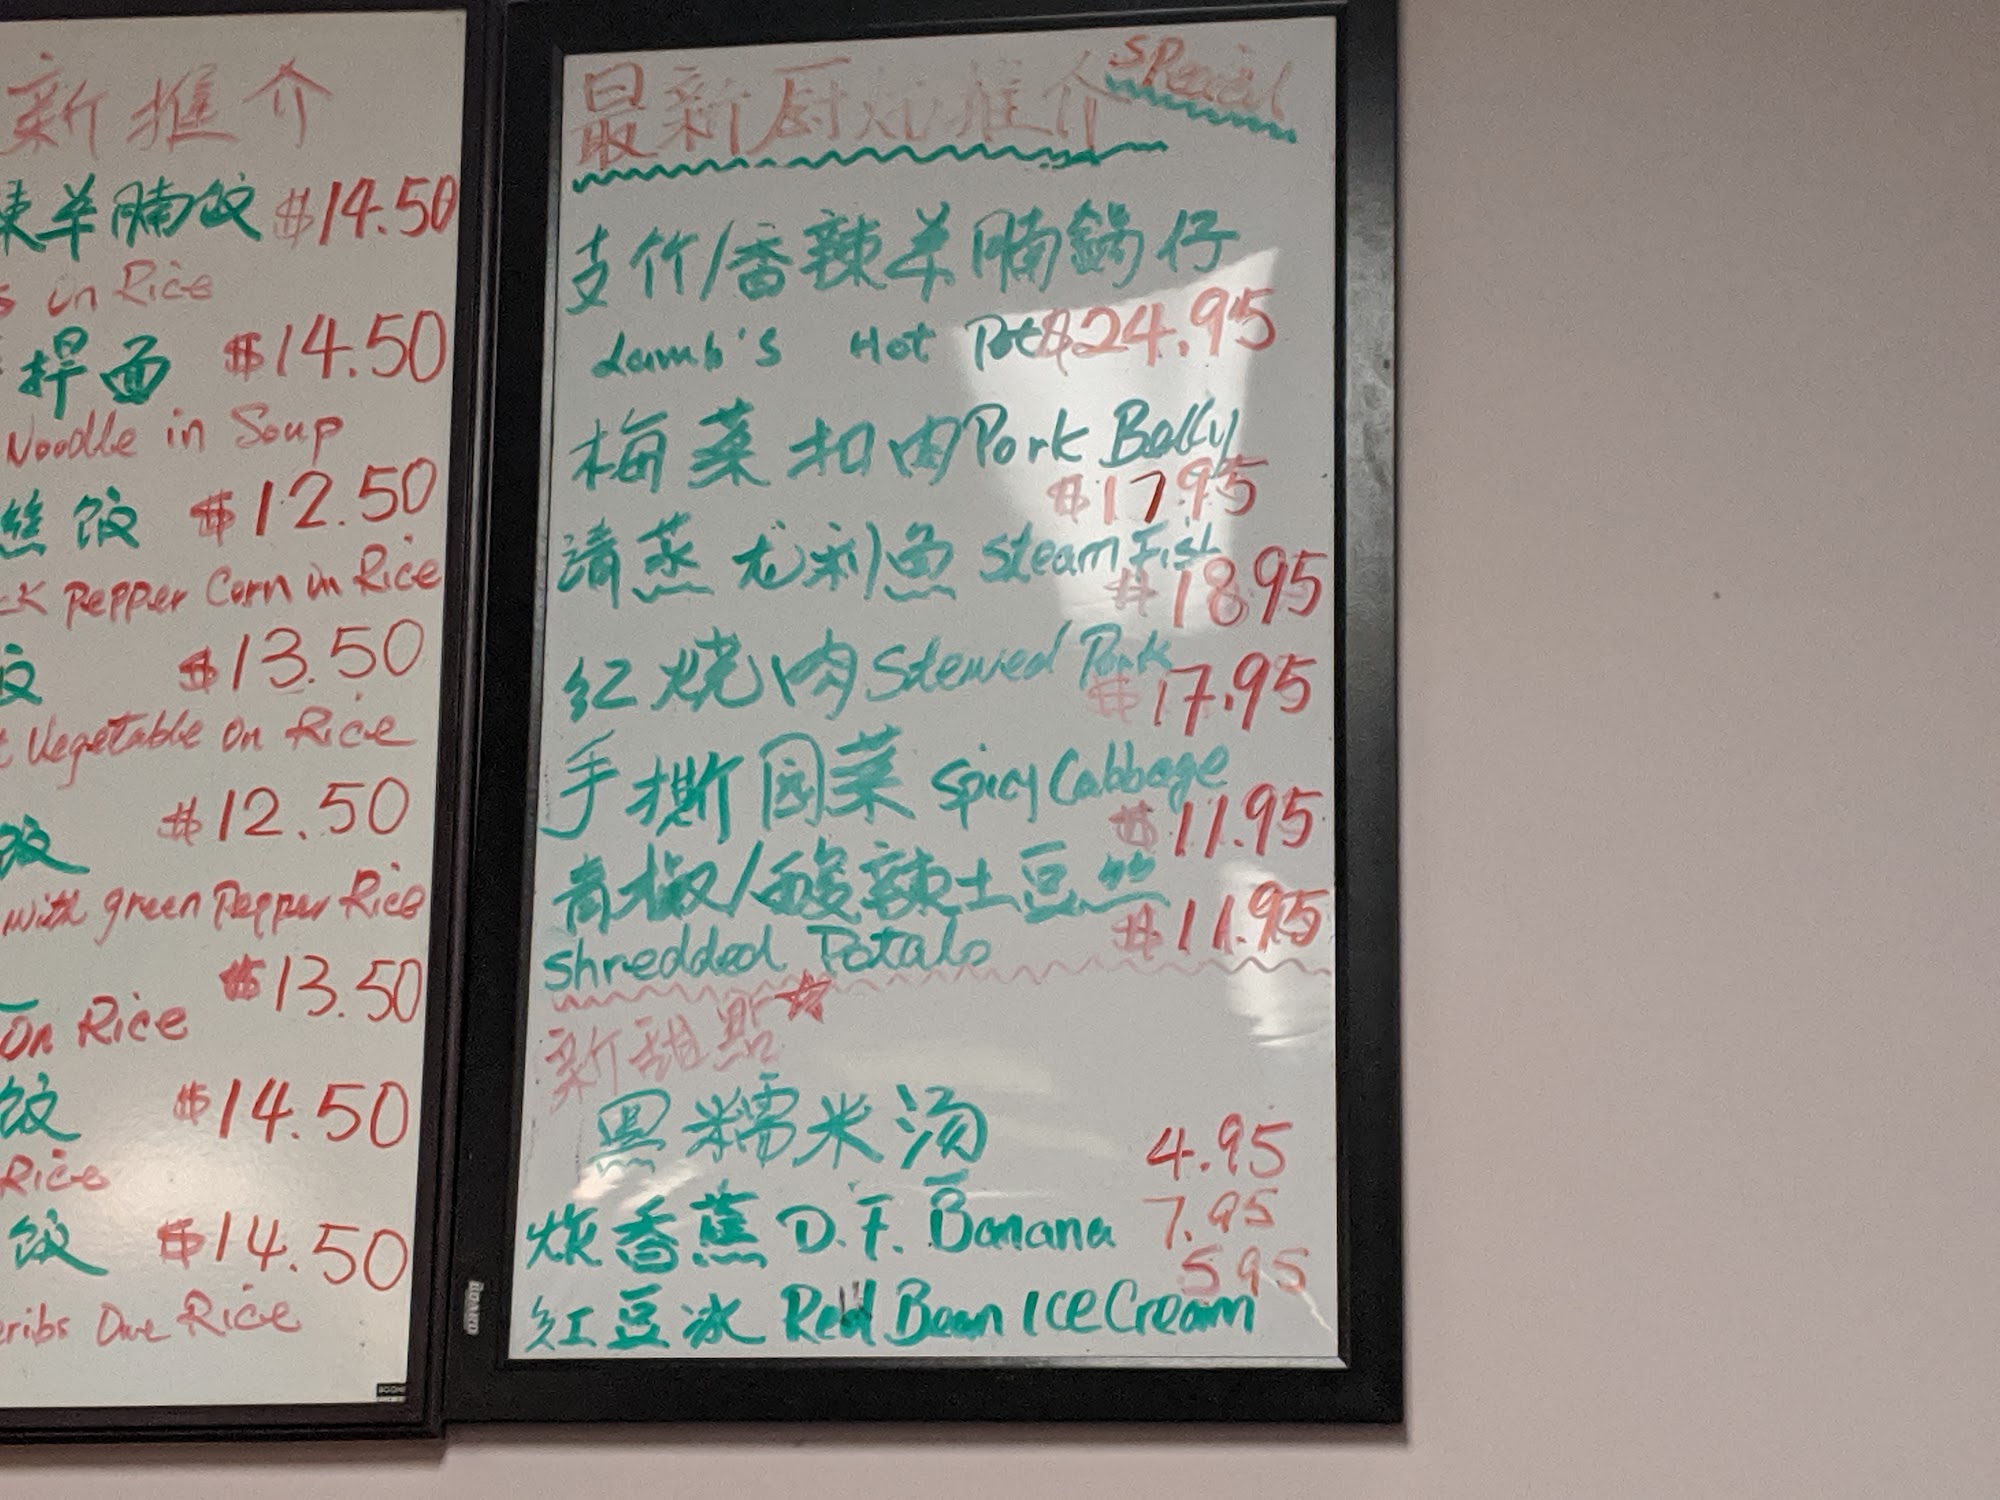 新推介
辣羊腩饭 $14.50
s in Rice
捍面 $14.50
Noodle in Soup
丝饭 $12.50
ck Pepper Corn in Rice
饭 $13.50
t Vegetable On Rice
饭 $12.50
with green Pepper Rice
$13.50
On Rice
饭 $14.50
Rice
饭 $14.50
eribs Ove Rice
最新厨 推介 Special
支竹/香辣羊腩鍋仔
Lamb's Hot Pot $24.95
梅菜扣肉 Pork Belly
$17.95
清蒸龙利鱼 Steam Fish
$18.95
红烧肉 Stewed Pork
$17.95
手撕园菜 Spicy Cabbage
$11.95
青椒/酸辣土豆丝
Shredded Potato $11.95
新甜點
黑糯米汤 4.95
炸香蕉 D.F. Banana 7.95
红豆冰 Red Bean Ice Cream 5.95